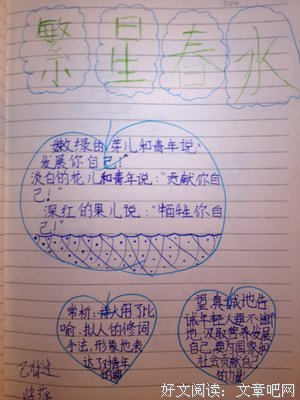 Date
繁星春水
嫩绿的芽儿和青年说:
发展你自己!”
淡白的花儿和青年说:“贡献你自
己!”
深红的果儿说:“牺牲你自
己!”
赏析:诗人用了比
喻、拟人的修词
手法,形象地表
达了对青年
望真诚地告
诫年轻人要不断
地汲取营养发展
自己,要为国家和
社会贡献自己
的力量!
好文阅读:文章吧网